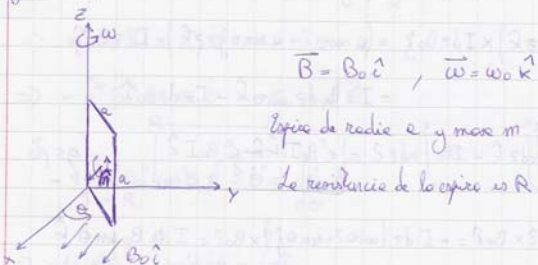 z
ω
B = B₀ î , ω = ω₀ k̂
a
Espira de radio a y masa m
a
y
La resistencia de la espira es R
θ
B₀ î
x